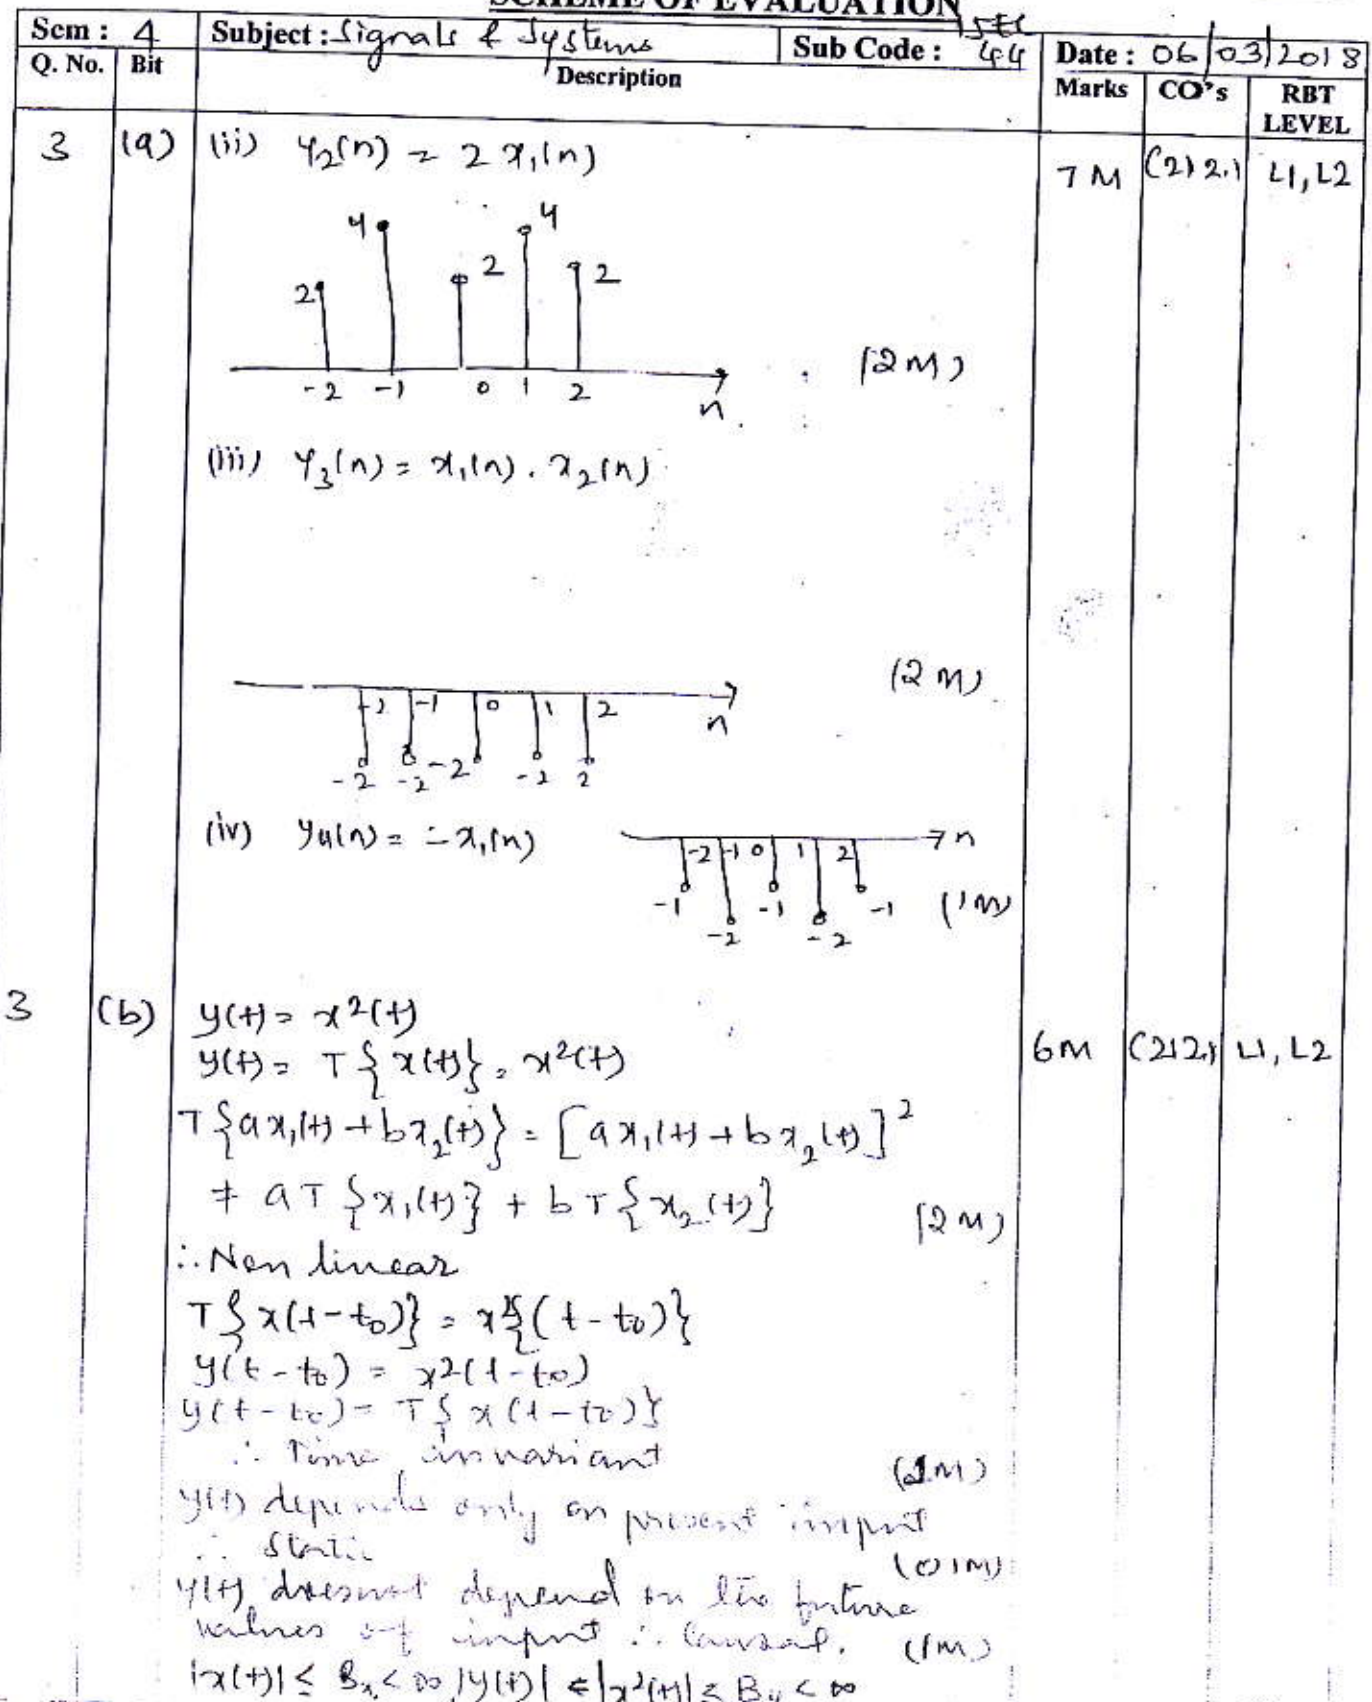 SCHEME OF EVALUATION
Sem : 4 Subject : Signals & Systems Sub Code : 15EC 44 Date : 06/03/2018
Q. No. Bit Description Marks CO's RBT LEVEL
3 (a) (ii) y₂(n) = 2 x₁(n) 7 M (2) 2.1 L1, L2
4 4
2 2 2
-2 -1 0 1 2 n
(2 M)
(iii) y₃(n) = x₁(n) . x₂(n)
(2 M)
-2 -1 0 1 2 n
-2 -2 -2 -2 2
(iv) y₄(n) = -x₁(n)
-2 -1 0 1 2 n
-1 -2 -1 -2 -1 (1M)
3 (b) y(t) = x²(t)
y(t) = T{x(t)} = x²(t) 6M (2)2.1 L1, L2
T{ax₁(t) + bx₂(t)} = [ax₁(t) + bx₂(t)]²
≠ aT{x₁(t)} + bT{x₂(t)} (2 M)
∴ Non linear
T{x(t-t₀)} = x²{(t-t₀)}
y(t-t₀) = x²(t-t₀)
y(t-t₀) = T{x(t-t₀)}
∴ Time invariant (1M)
y(t) depends only on present input
∴ Static (01M)
y(t) doesnot depend on the future
values of input ∴ Causal. (1M)
|x(t)| ≤ Bₓ < ∞ |y(t)| ≤ |x²(t)| ≤ By < ∞